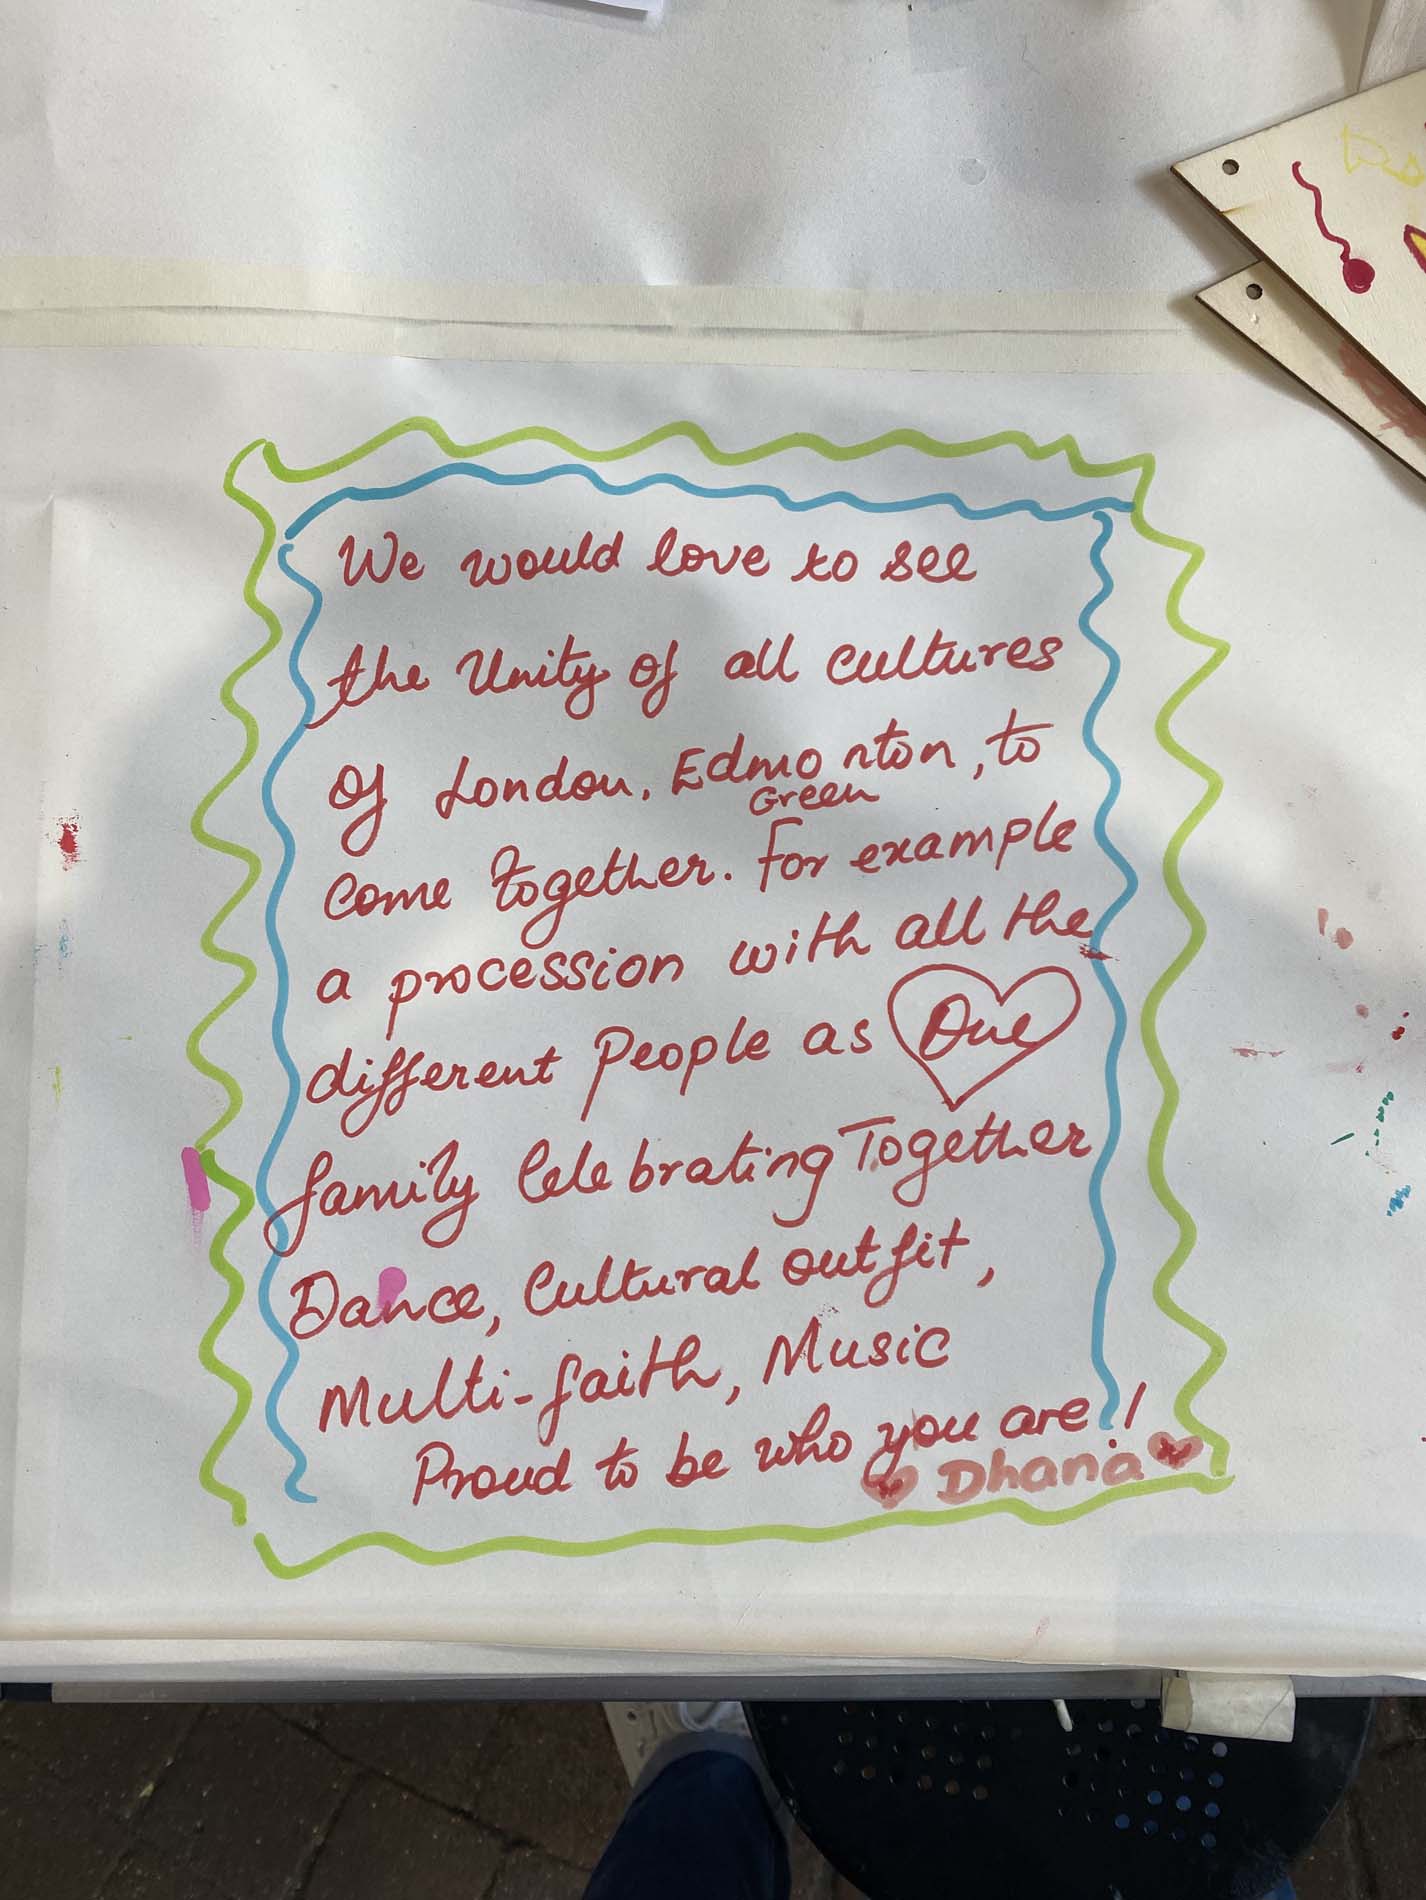 We would love to see
the Unity of all cultures
of London, Edmonton, to
Green
come together. For example
a procession with all the
different People as One
family Celebrating Together
Dance, Cultural outfit,
Multi-faith, Music
Proud to be who you are!
Dhana